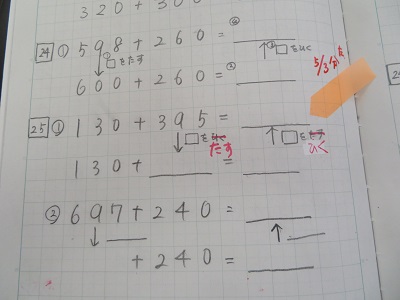 320+30
24 ① 598+260=
↓ □をたす ↑ □をひく
600+260=
5/3
25 ① 130+395=
↓ □を たす ↑ □を ひく
130+ =
② 697+240=
↓ ↑
+240=